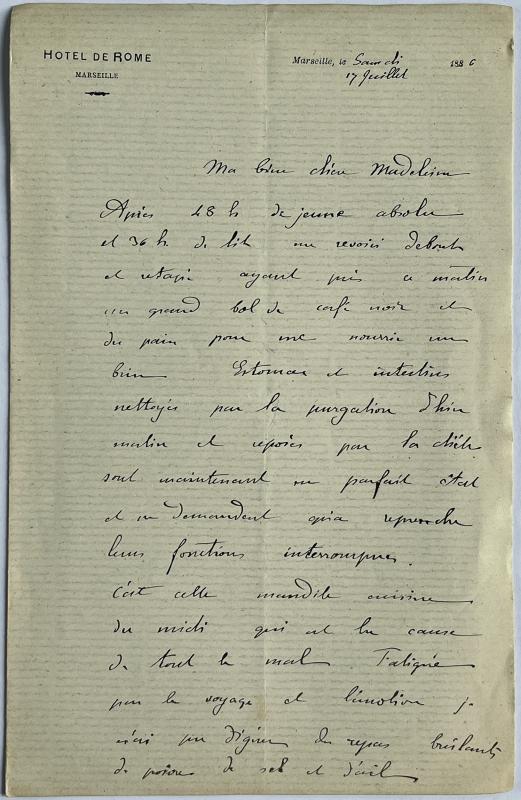 HOTEL DE ROME
MARSEILLE
Marseille, le Samedi 1886
17 Juillet
Ma bien chère Madeleine
Après 48 h de jeune absolu
et 36 h de lit me revoici debout
et retapé ayant pris ce matin
un grand bol de café noir et
du pain pour me nourrir un
brin Estomac et intestins
nettoyés par la purgation d'hier
matin et reposés par la diète
sont maintenant en parfait état
et ne demandent qu'à reprendre
leurs fonctions interrompues.
C'est cette maudite cuisine
du midi qui est la cause
de tout le mal Fatigué
par le voyage et l'émotion je
n'ai pu digérer des repas brûlants
de poivre de sel et d'ail